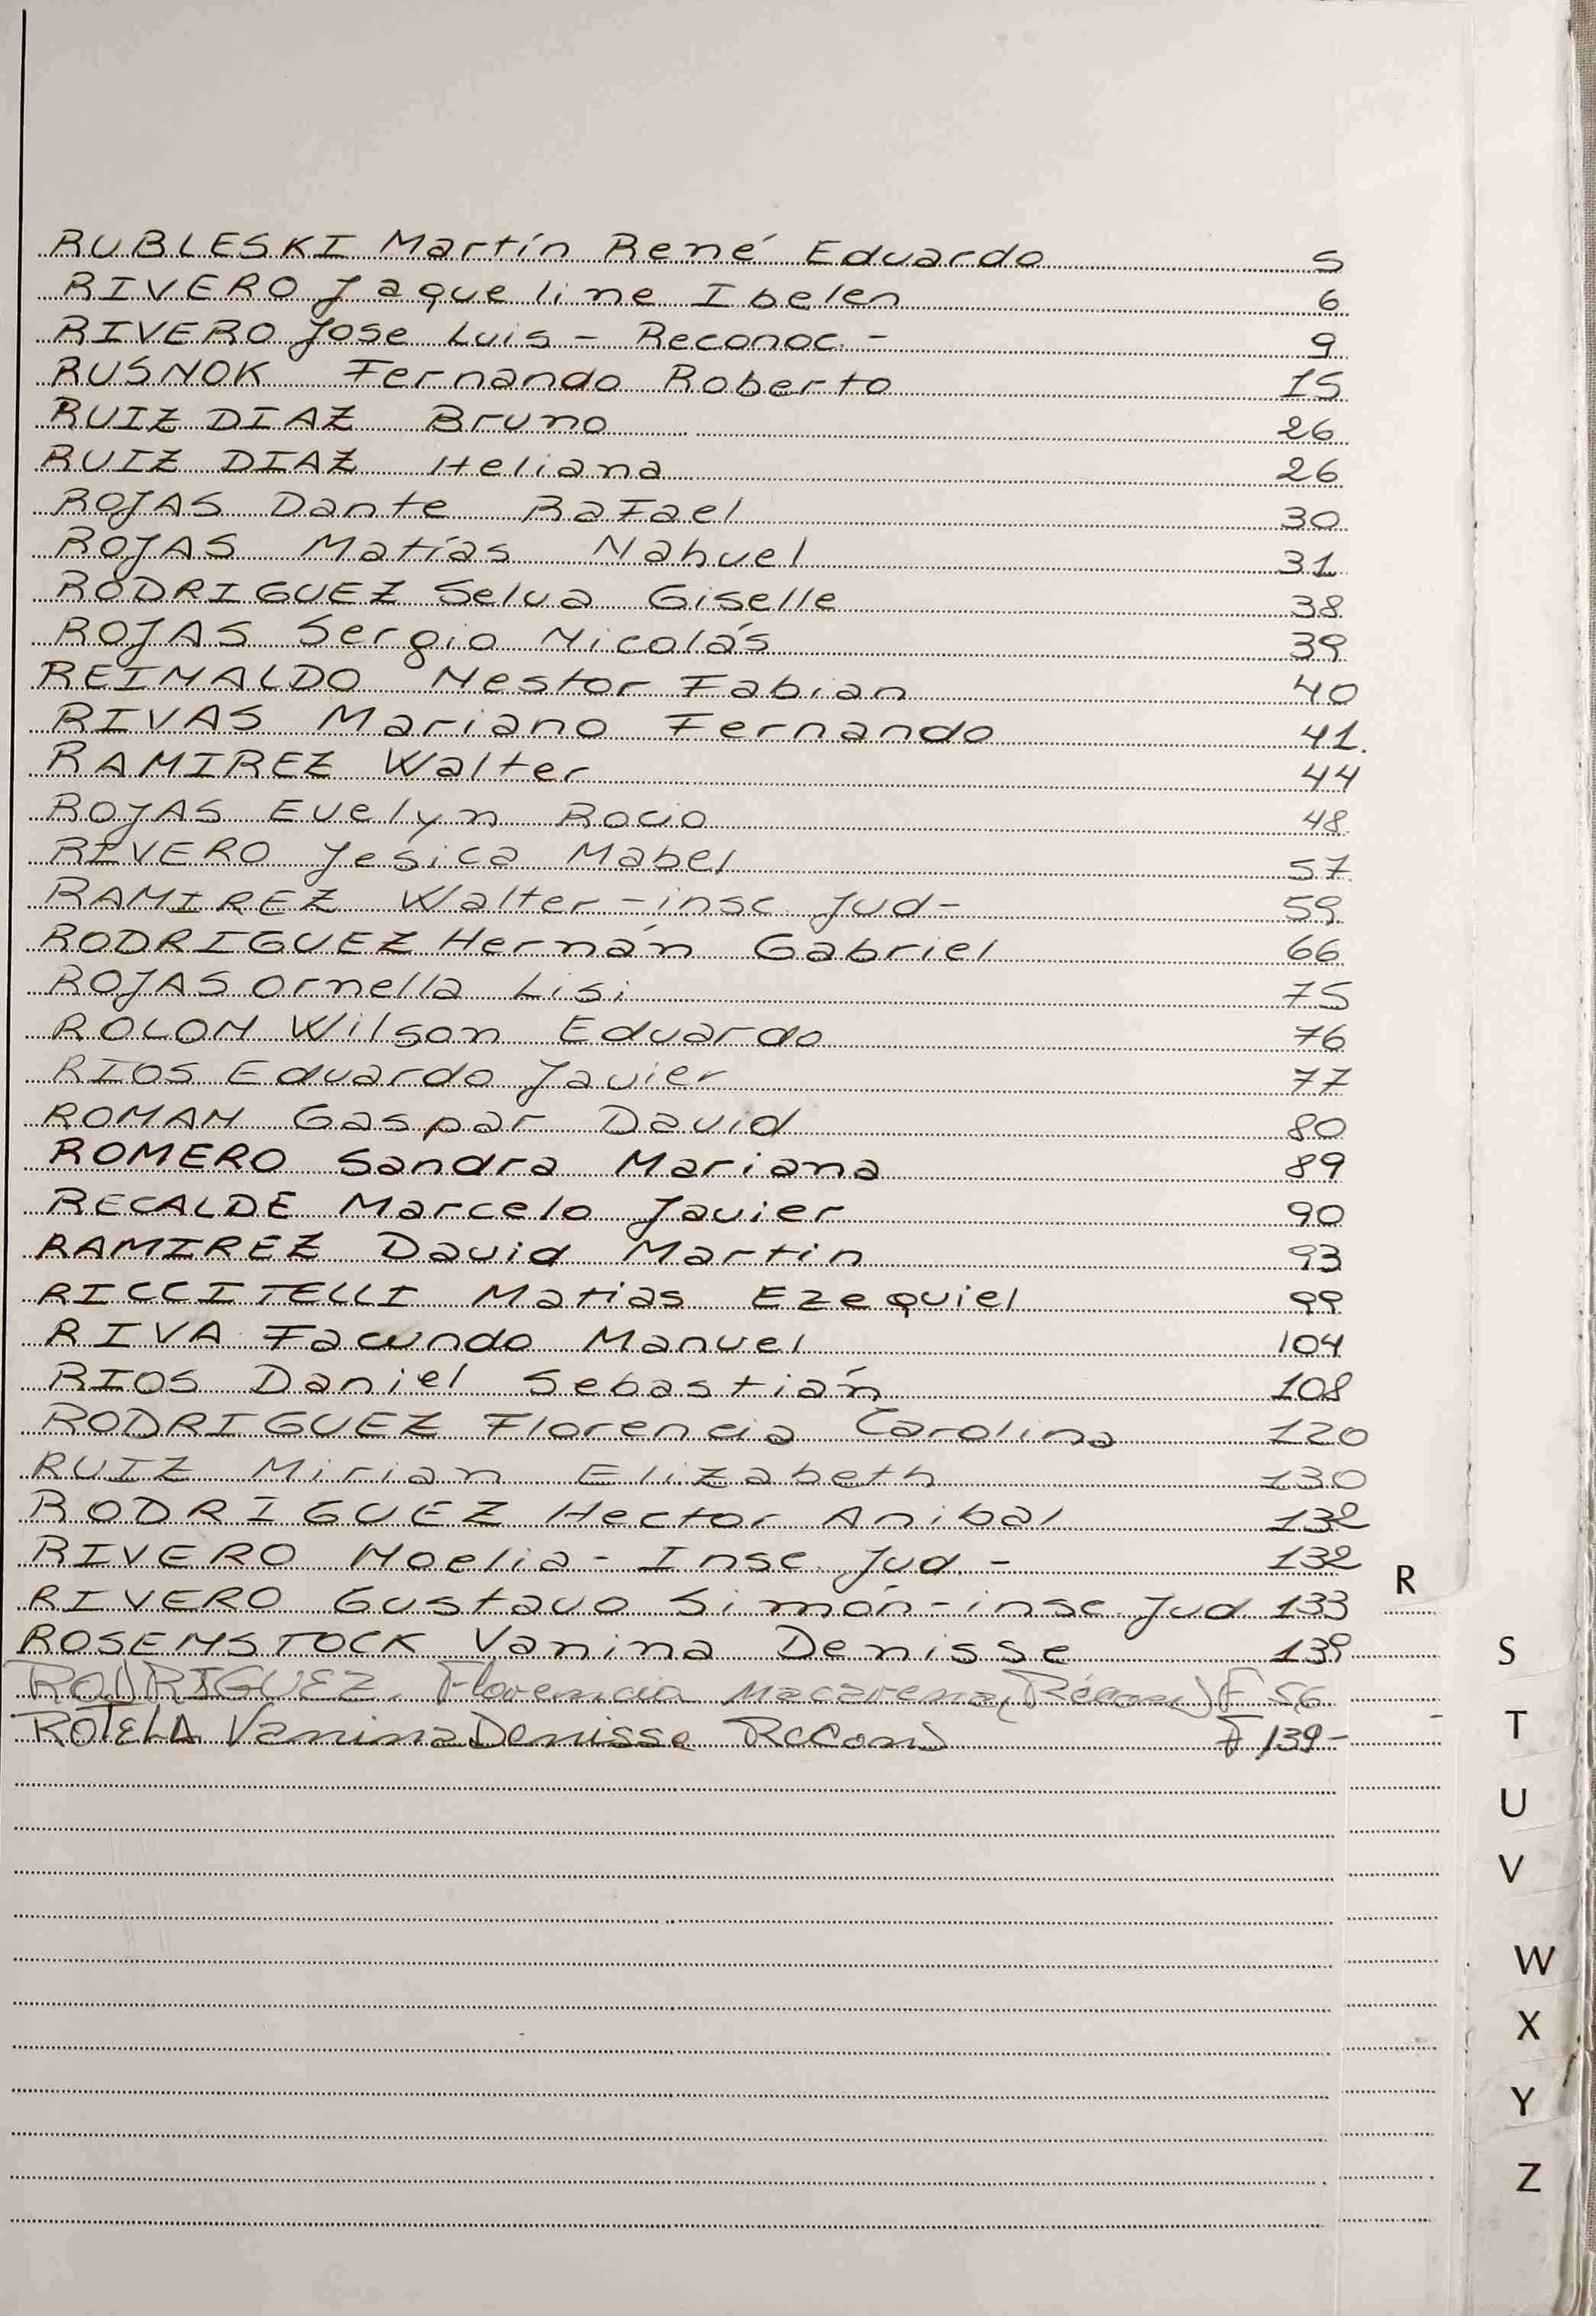 RUBLESKI Martín René Eduardo 5
RIVERO Jaqueline Ibelen 6
RIVERO Jose Luis - Reconoc. - 9
RUSNOK Fernando Roberto 15
RUIZ DIAZ Bruno 26
RUIZ DIAZ Heliana 26
ROJAS Dante Rafael 30
ROJAS Matías Nahuel 31
RODRIGUEZ Selva Giselle 38
ROJAS Sergio Nicolás 39
REINALDO Nestor Fabian 40
RIVAS Mariano Fernando 41.
RAMIREZ Walter 44
ROJAS Evelyn Rocio 48
RIVERO Jesica Mabel 57
RAMIREZ Walter - insc. Jud - 59
RODRIGUEZ Hernán Gabriel 66
ROJAS Ornella Lisi 75
ROLON Wilson Eduardo 76
RIOS Eduardo Javier 77
ROMAN Gaspar David 80
ROMERO Sandra Mariana 89
RECALDE Marcelo Javier 90
RAMIREZ David Martin 93
RICCITELLI Matias Ezequiel 99
RIVA Facundo Manuel 104
RIOS Daniel Sebastián 108
RODRIGUEZ Florencia Carolina 120
RUIZ Mirian Elizabeth 130
RODRIGUEZ Hector Anibal 132
RIVERO Noelia - Insc. Jud. - 132
RIVERO Gustavo Simón - insc. Jud 133
ROSENSTOCK Vanina Denisse 139
RODRIGUEZ, Florencia Macarena F 56
ROTELA Vanina Denisse F 139-
R
S
T
U
V
W
X
Y
Z